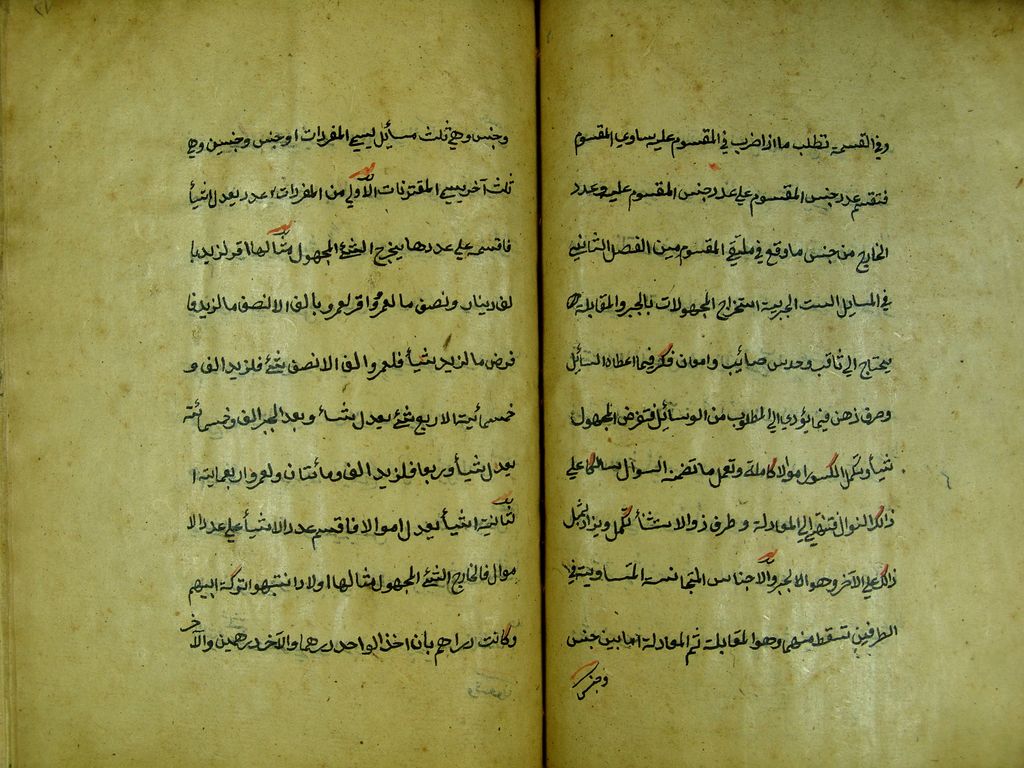 وفي القسمة تطلب ما اذا ضرب في المقسوم عليه يساوي المقسوم
فتقسم عدد جنس المقسوم علي عدد جنس المقسوم عليه وعدد
الخارج من جنس ما وقع في ملتقي المقسومين الفصل الثاني
في المسايل الست الجبرية استخراج المجهولات بالجبر والمقابلة
يحتاج الي ثاقب وحدس صائب وامعان فكر فيما اعطاه السائل
وصرف ذهن فيما يؤدي الي المطلوب من الوسائل فتفرض المجهول
شيأ وتكمل الكسور اموالا كاملة وتعمل ما تضمنه السوال سالكا علي
ذالك النوال فتنتهي الي المعادلة وطرف ذو الاستثنأ تكمل ويزاد بمثل
ذالك علي الآخر وهو الالجبر والاجناس المتجانسة المتساوية في
الطرفين تسقط منهما وهو المقابلة ثم المعادلة اما بين جنس
وجنس
وجنس وهي ثلث مسائيل يسمي المفردات او جنس وجنسين وهي
ثلث آخر يسمي المقترنات الاولي من المفردات عدد يعدل اشيأ
فاقسمه علي عددها يخرج الشئ المجهول مثالها اقر لزيد با
لف دينار ونصف ما لعمرو واقر لعمرو بالف الا نصف ما لزيد فا
فرض ما لزيد شيأ فلعمرو الف الا نصف شئ فلزيد الف و
خمسمائية الا ربع شئ يعدل شيأ وبعد الجبر الف وخمسمائة
يعدل شيأ وربعا فلزيد الف ومأئتان ولعمرو اربعماية ا
لثانية اشيأ يعدل اموالا فاقسم عدد الاشيأ علي عدد الا
موال فالخارج الشئ المجهول مثالها اولاد انتهبوا تركة ابيهم
وكانت دراهم بان اخذ الواحد درهما والآخر درهمين والآخر